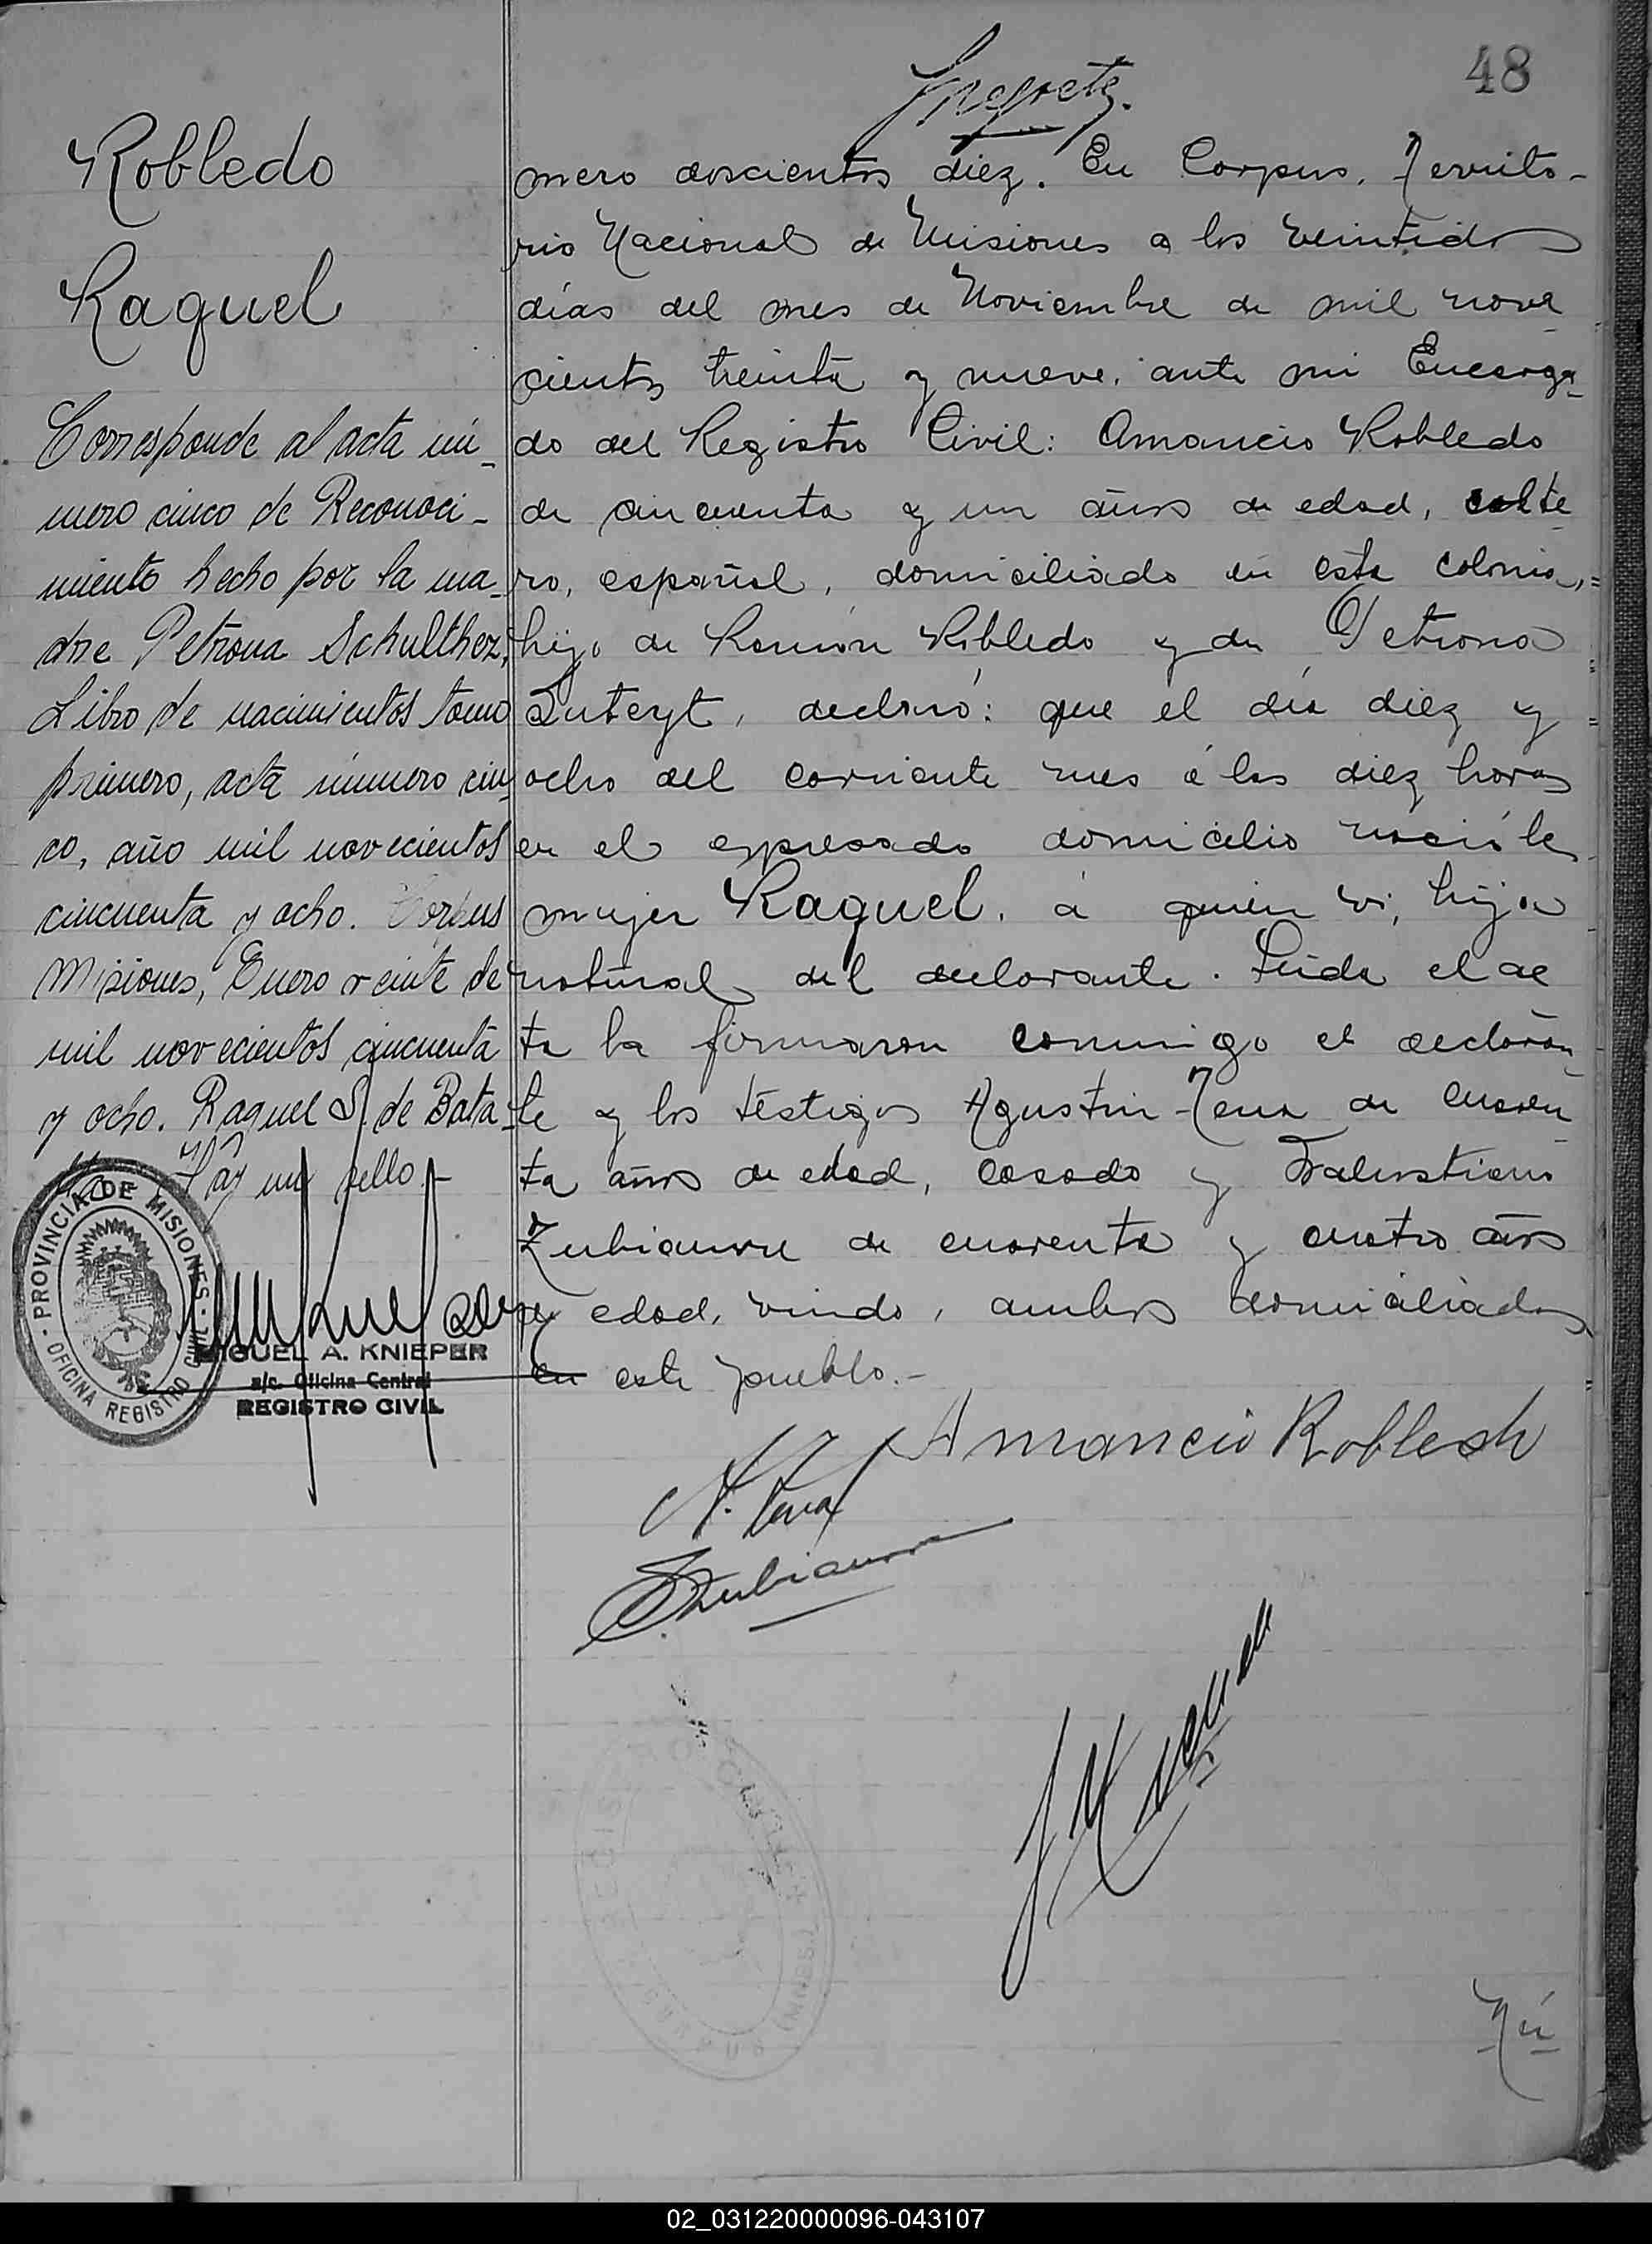 48
Robledo
Raquel
Corresponde al acta nú-
mero cinco de Reconoci-
miento hecho por la ma-
dre Petrona Schulthez,
Libro de nacimientos tomo
primero, acta número cin-
co, año mil novecientos
cincuenta y ocho. Corpus
Misiones, Enero veinte de
mil novecientos cincuenta
y ocho. Raquel S. de Bata-
Hay un sello.-
PROVINCIA DE MISIONES
OFICINA REGISTRO CIVIL
MIGUEL A. KNIEPER
a/c. Oficina Central
REGISTRO CIVIL
mero doscientos diez. En Corpus, Territo-
rio Nacional de Misiones a los veintidos
días del mes de Noviembre de mil nove
cientos treinta y nueve, ante mi Encarga-
do del Registro Civil: Amancio Robledo
de cincuenta y un años de edad, solte
ro, español, domiciliado en esta colonia,=
hijo de Ramón Robledo y de Petrona
declaró: que el día diez y
ocho del corriente mes á las diez horas
en el expresado domicilio nació la
mujer Raquel, a quien vi, hija
natural del declarante. Leída el ac
ta la firmaron conmigo el declaran
te y los testigos Agustin Tena de cuaren
ta años de edad, casado y Salustiano
Zubiaurre de cuarenta y cuatro años
de edad, viudo, ambos domiciliados
en este pueblo.-
Amancio Robledo
A. Tena
S Zubiaurre
REGISTRO CIVIL
CORPUS (MNES.)
Nú
02_031220000096-043107